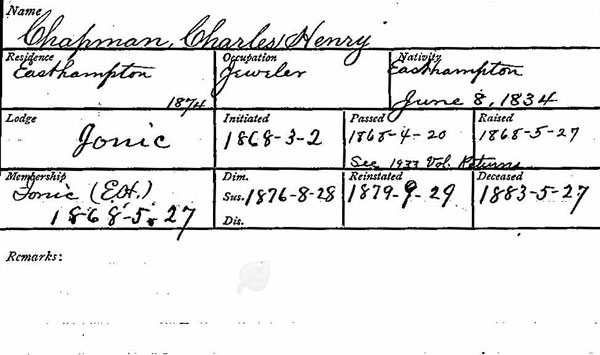 Name
Chapman, Charles Henry
Residence Occupation Nativity
Easthampton Jeweler Easthampton
1874 June 8, 1834
Lodge Initiated Passed Raised
Ionic 1868-3-2 1868-4-20 1868-5-27
See 1933 Vol. Returns
Membership Dim. Reinstated Deceased
Ionic (E.H.) Sus. 1876-8-28 1879-9-29 1883-5-27
1868-5-27 Dis.
Remarks: